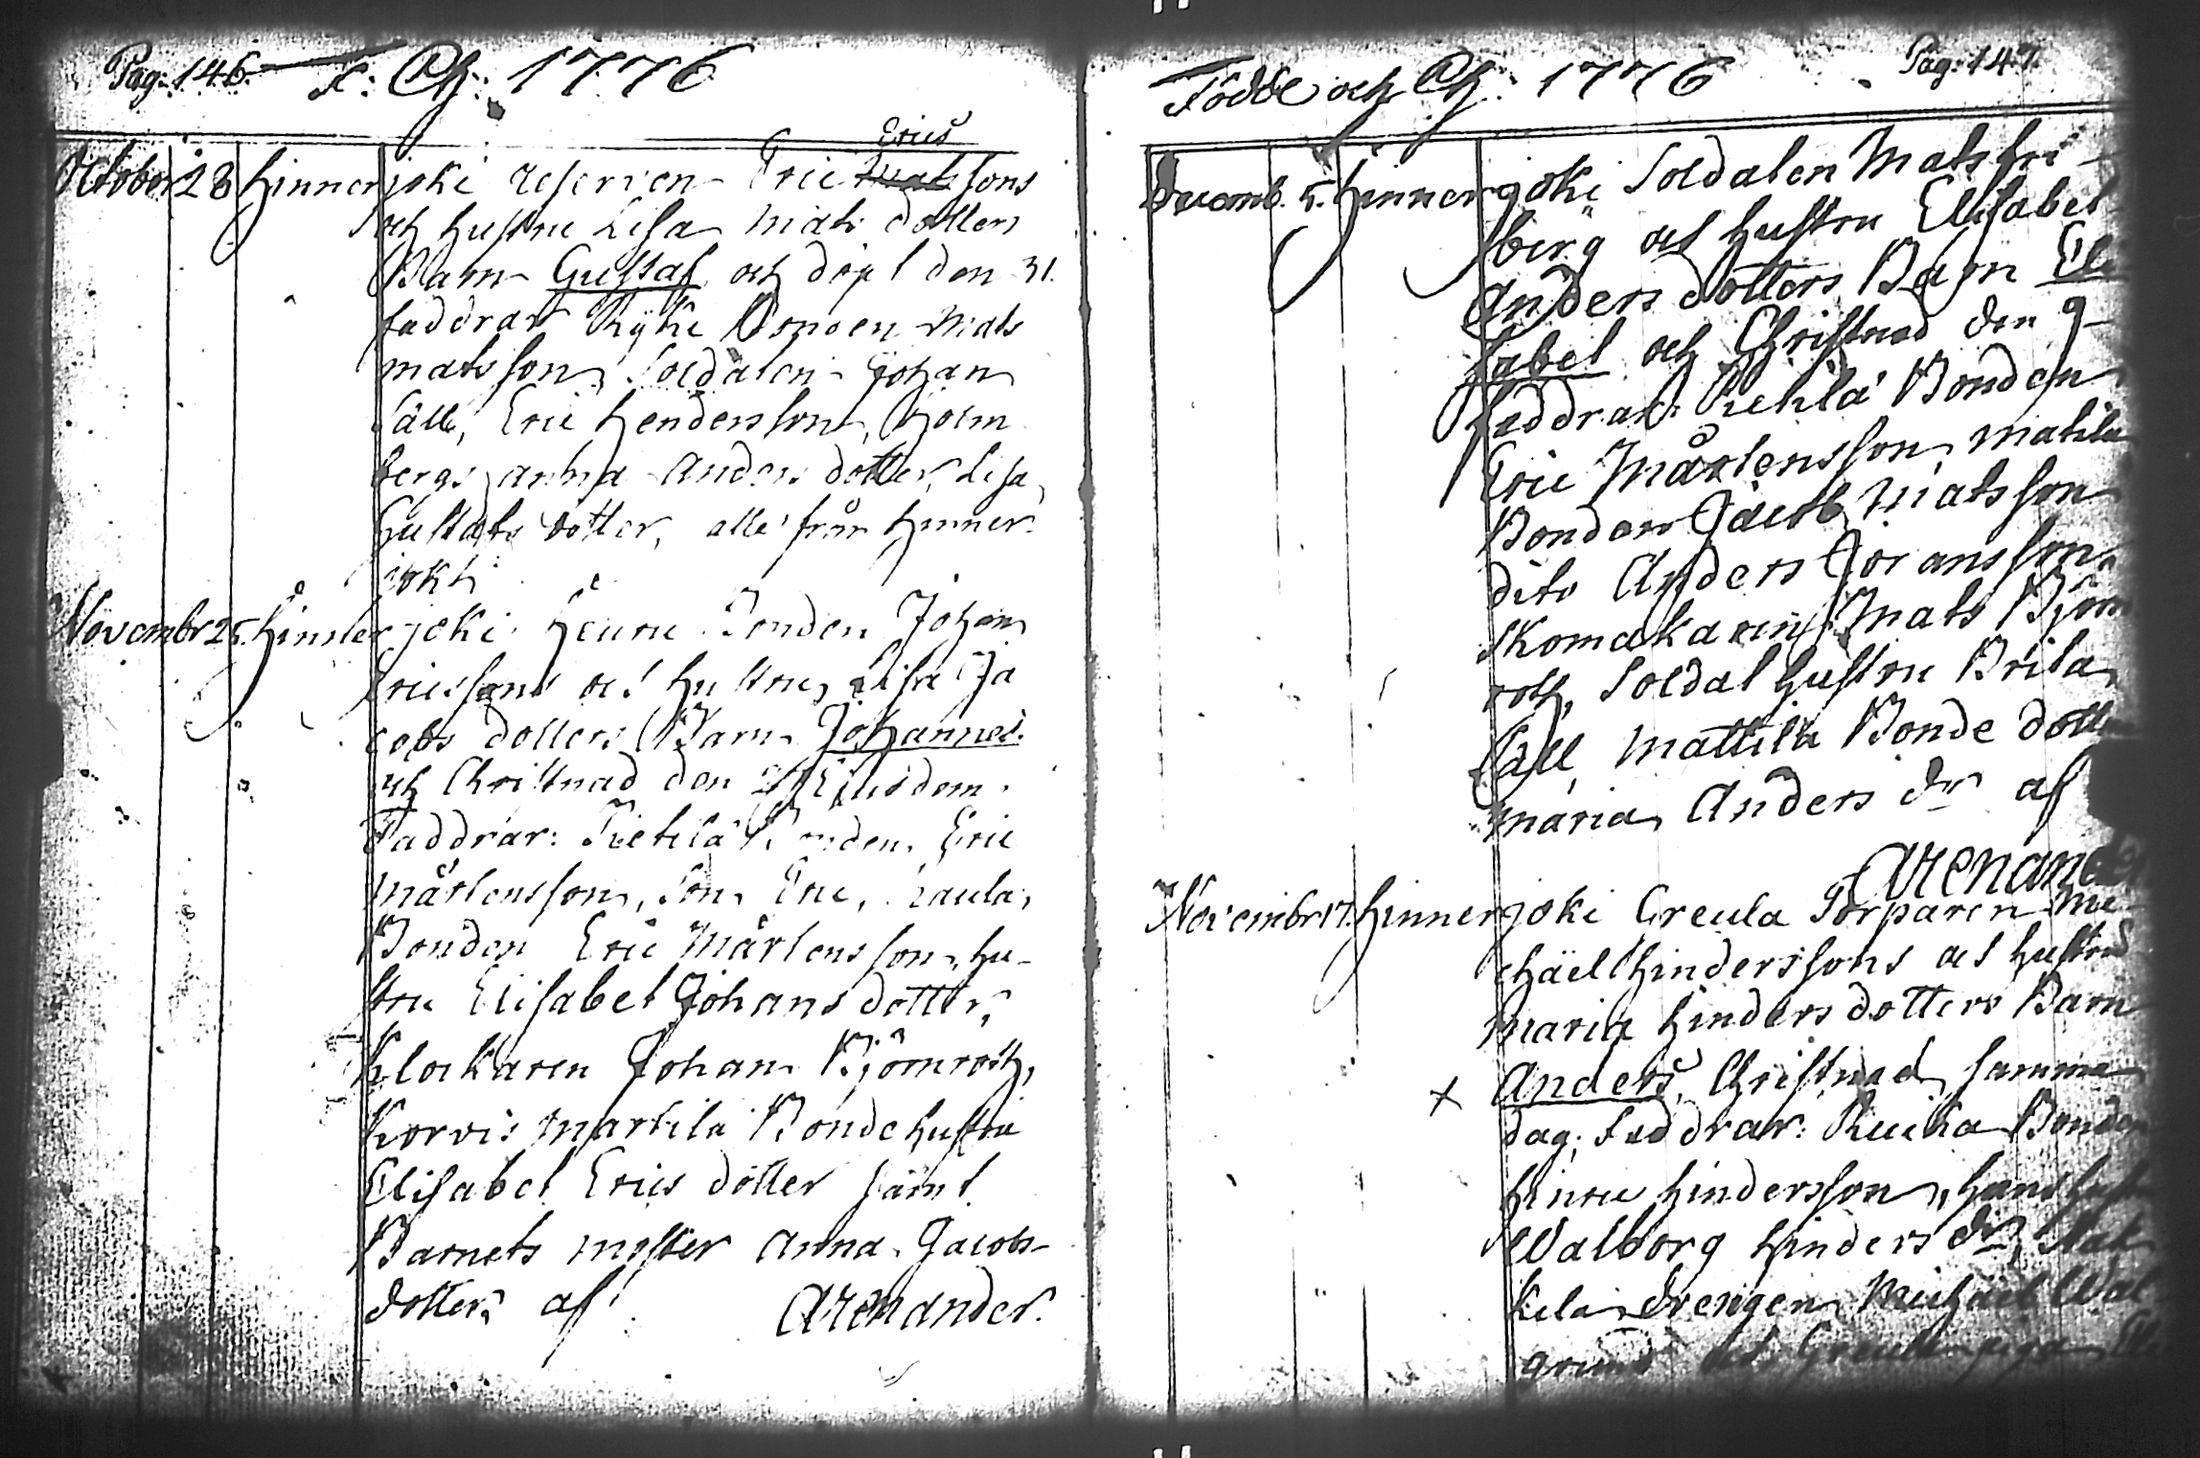 Pag: 146. F: Ch: 1776
Erics
October 28 Hinnerjoki reserven Eric Matssons
och hustru Lisa Mats dotters
Barn Gustaf och döpt den 31.
faddrar Kyke Bonden Mats
matsson, Soldaten Johan
Säll, Eric Hendersson, Holm
bergs anna Anders dotter, Lisa
Gustafs dotter, alle från Hinner-
joki
Novembr 25. Hinnerjoki Bonden Johan
Ericssons och hustru Lisa Ja
cobs dotters Barn Johannes.
och Christnad den Ejusdem.
Faddrar: Kietilä Bonden Eric
Mårtensson, Son Eric,
Bonden Eric Mårtensson, hu-
stru Elisabet Johans dotter,
Klockaren Johan Björnroth,
Korvis Martila Bonde hustru
Elisabet Erics dotter samt
Barnets moster Anna Jacobs-
dotter, af Arenander.
Födde och Ch: 1776 Pag: 147.
Decemb. 5. Hinnerjoki Soldaten Mats fri-
berg och hustru Elisabet
Anders dotters Barn Eli
sabet och Christnad den 9
faddrar: Bonden
Eric Mårtensson, matila
Bonden Jacob Matsson
dito Anders Joransson,
Skomakaren Mats Björn
roth, Soldat hustru Brita
Säll, Mattila Bonde dott
Maria Anders dr af
Arenander
Novembr 17. Hinnerjoki Creula Torparen Mi-
chäel Hinderssons och hustru
Maria Hinders dotters Barn
x Anders, Christnad samma
dag; Faddrar: Bonden
Hinric Hindersson, hans hustru
Walborg Hinders dr,
kila drengen Michael Wal
grund och Greula piga